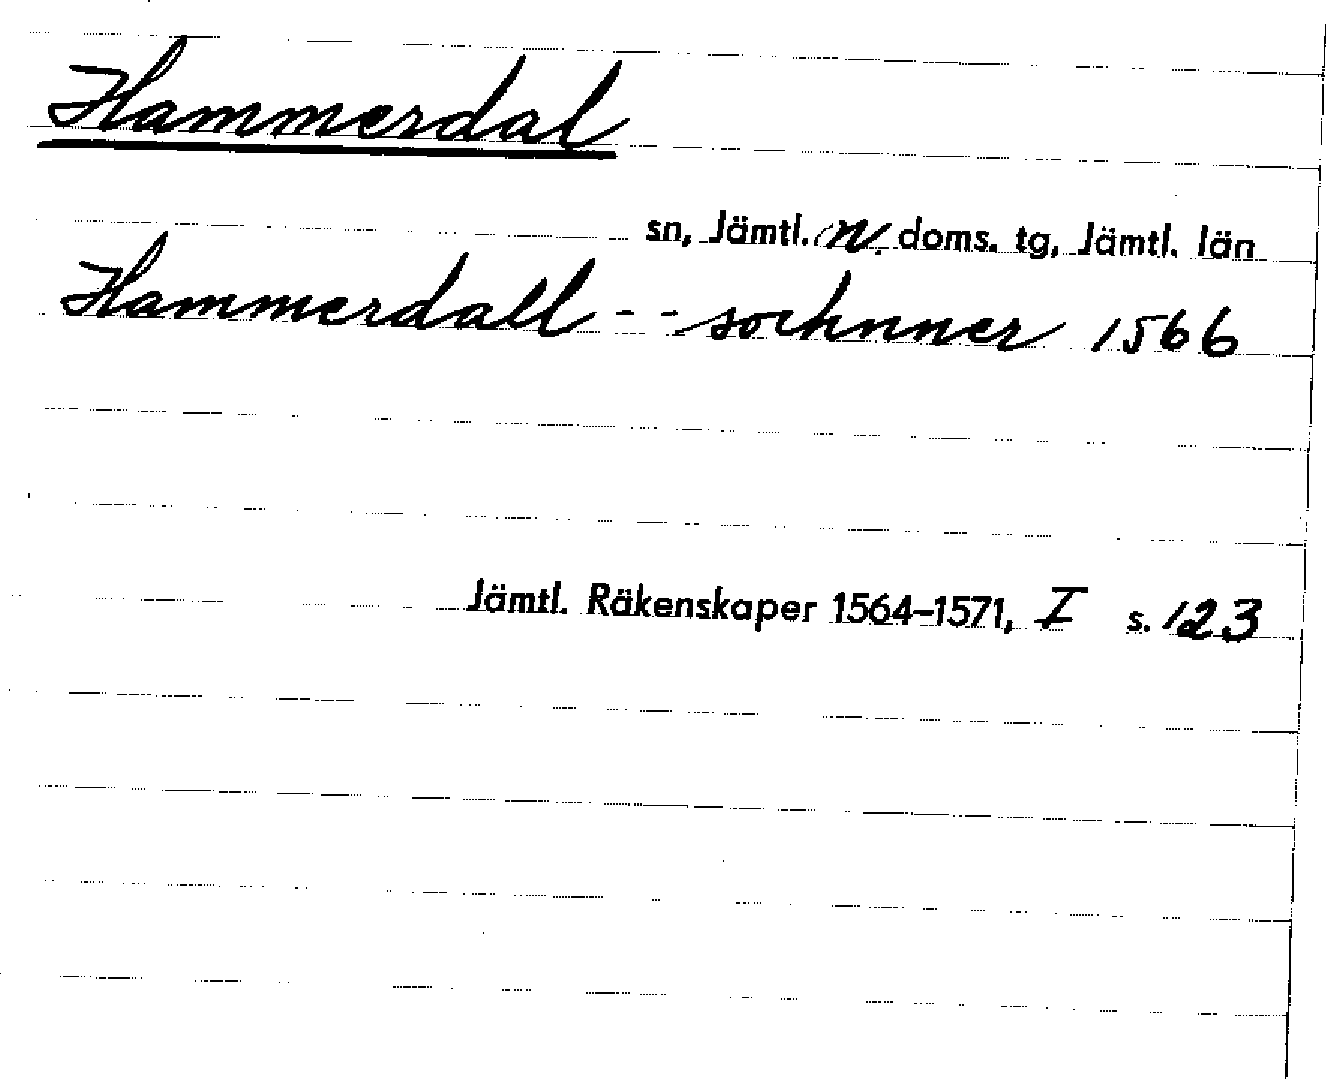 Hammerdal
sn, Jämtl. n. doms. tg, Jämtl. län
Hammerdall - - sochnner 1566
Jämtl. Räkenskaper 1564–1571, I s. 123